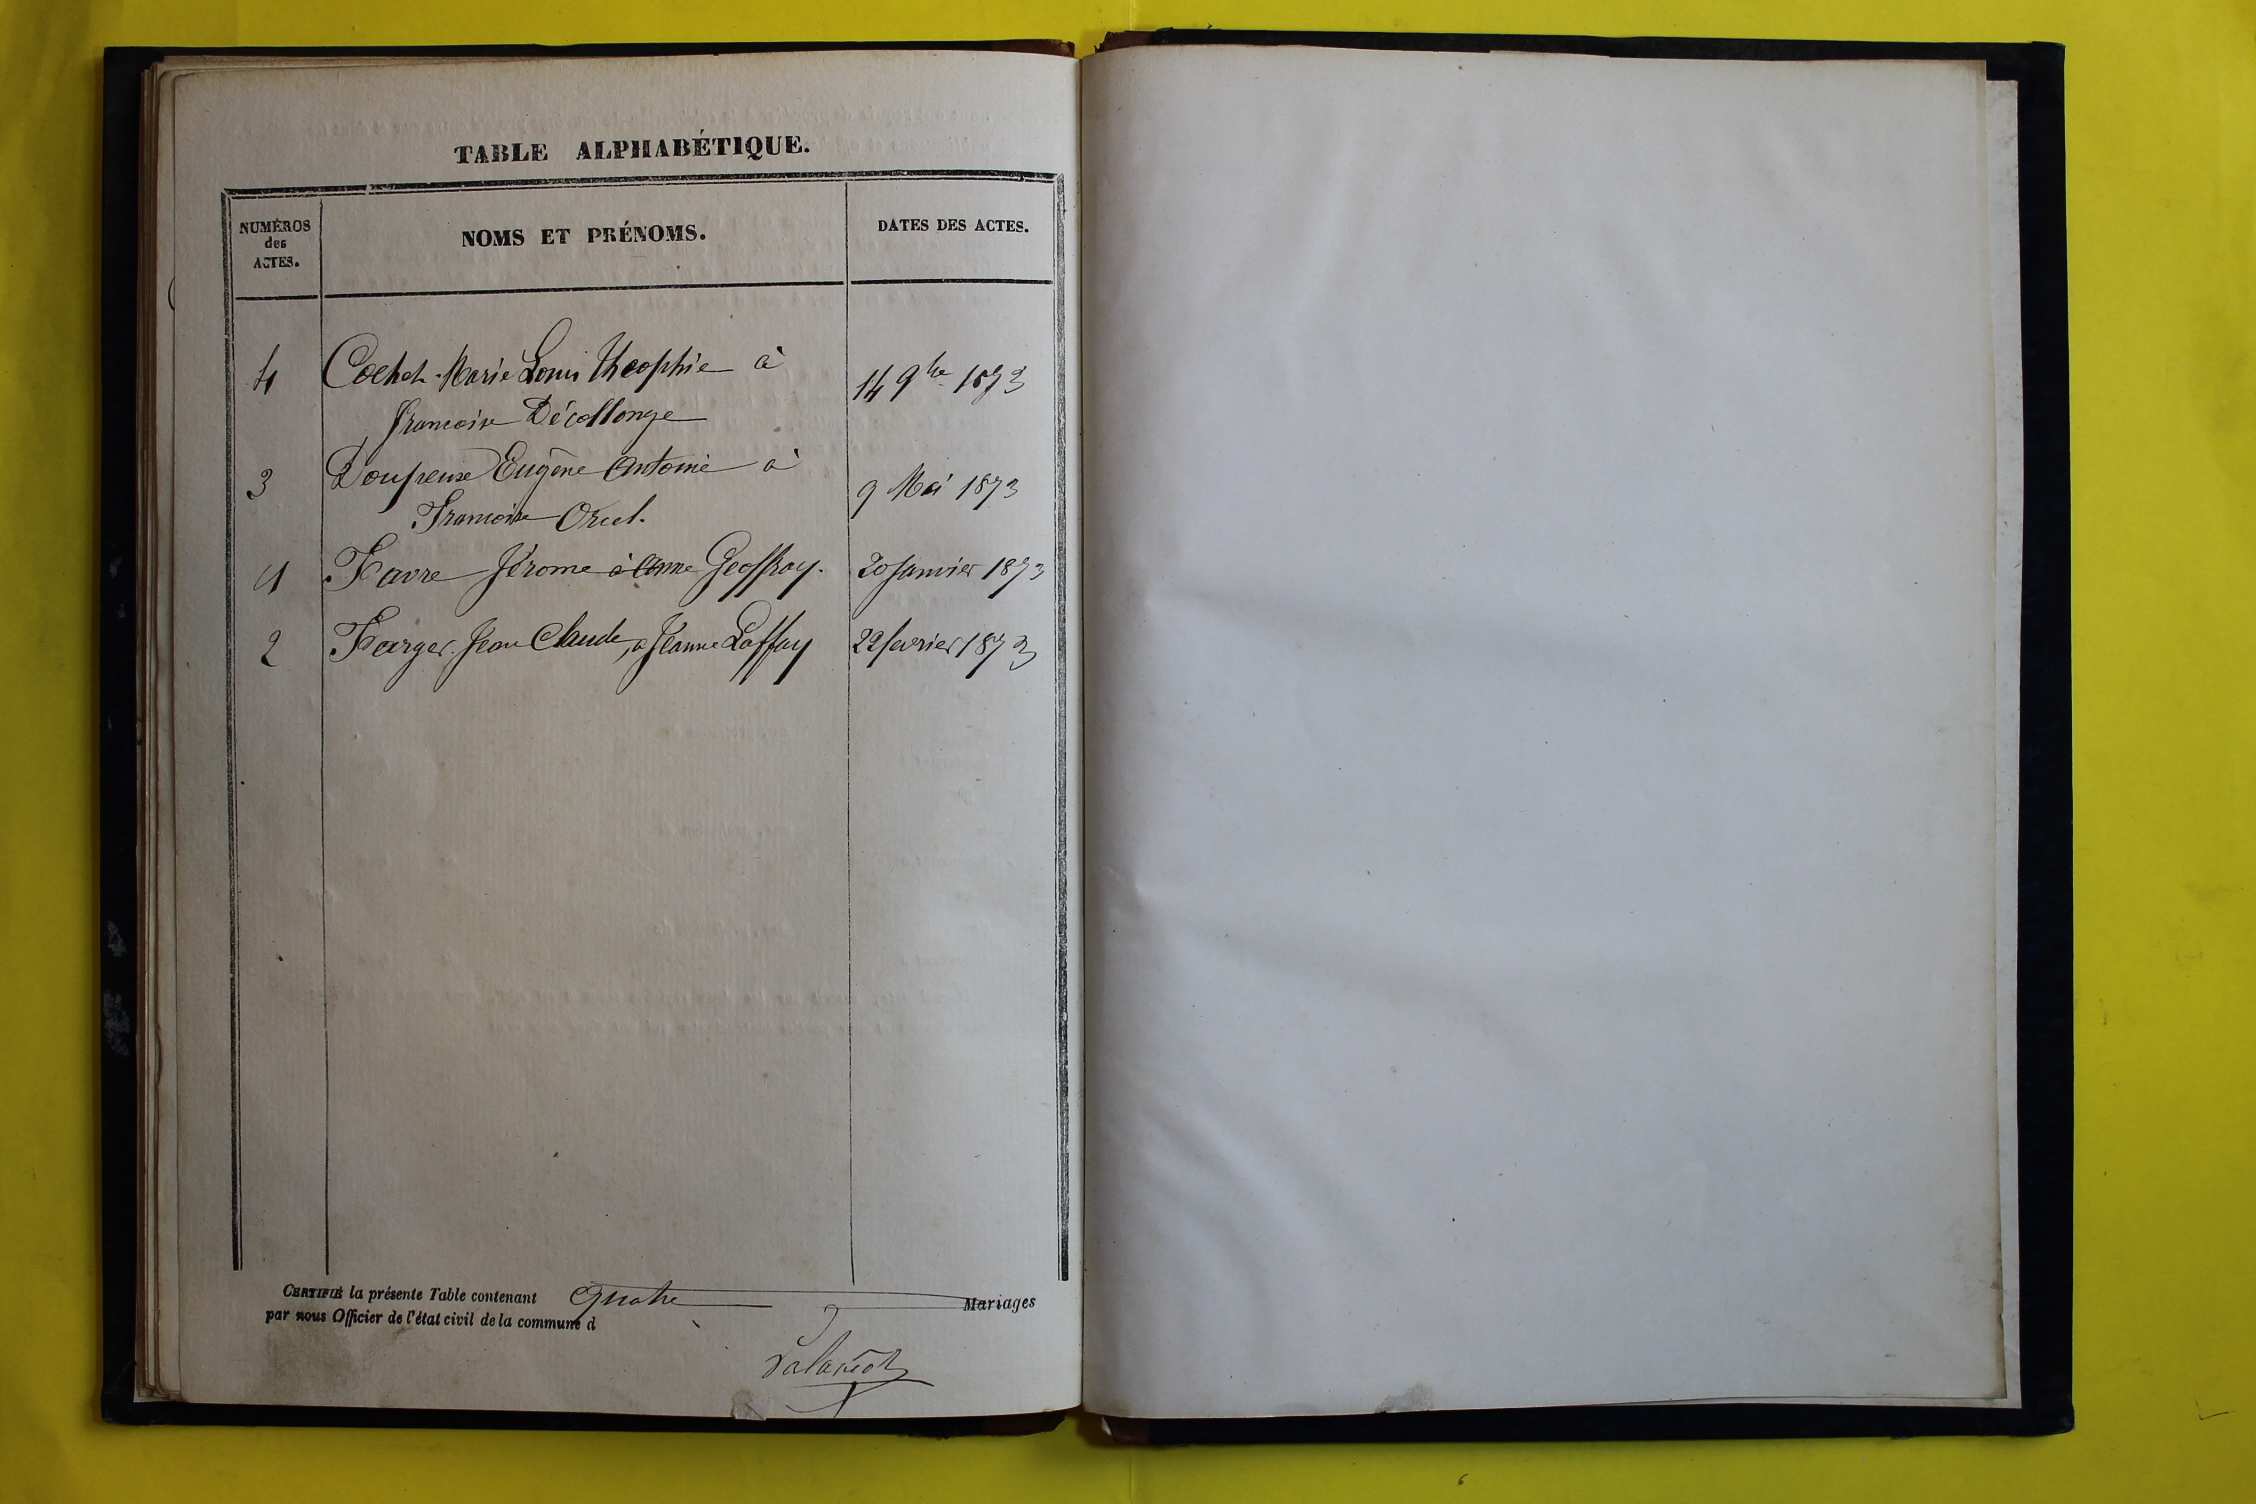 TABLE ALPHABÉTIQUE.
NUMÉROS des ACTES.
NOMS ET PRÉNOMS.
DATES DES ACTES.
4 Cochet Marie Louis Theophie à 14 9bre 1873
francoise Décollonge
3 Eugène Antoine à 9 Mai 1873
Francoise Orcel.
1 Favre Jérome à Anne Geoffray. 20 Janvier 1873
2 Farger Jean Claude, à Jeanne Laffay 22 fevrier 1873
CERTIFIÉ la présente Table contenant quatre Mariages
par nous Officier de l'état civil de la commune d